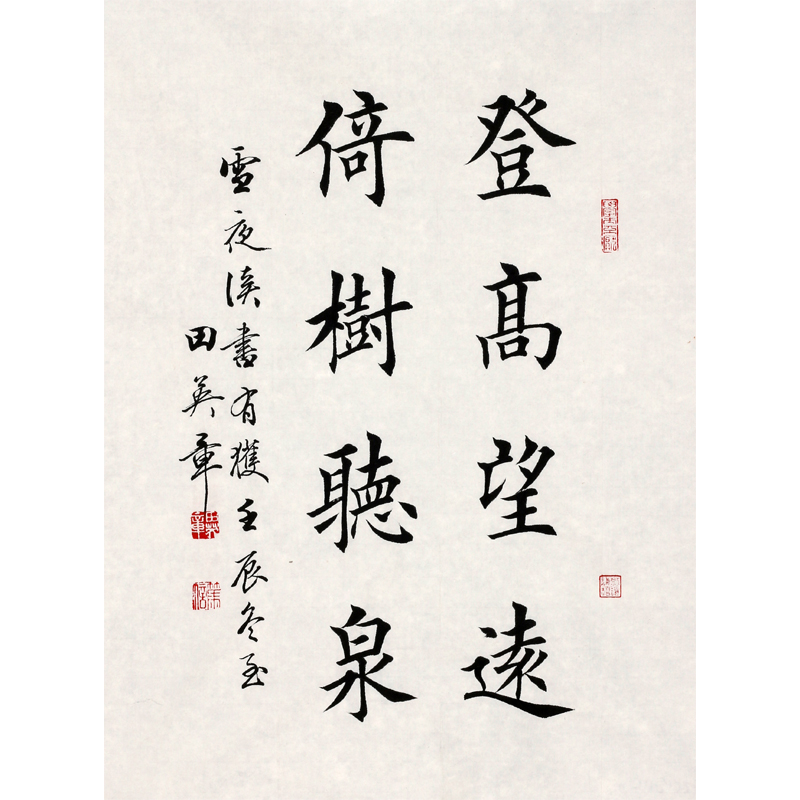 登高望遠
倚樹聽泉
雪夜读書有獲壬辰冬至
田英章